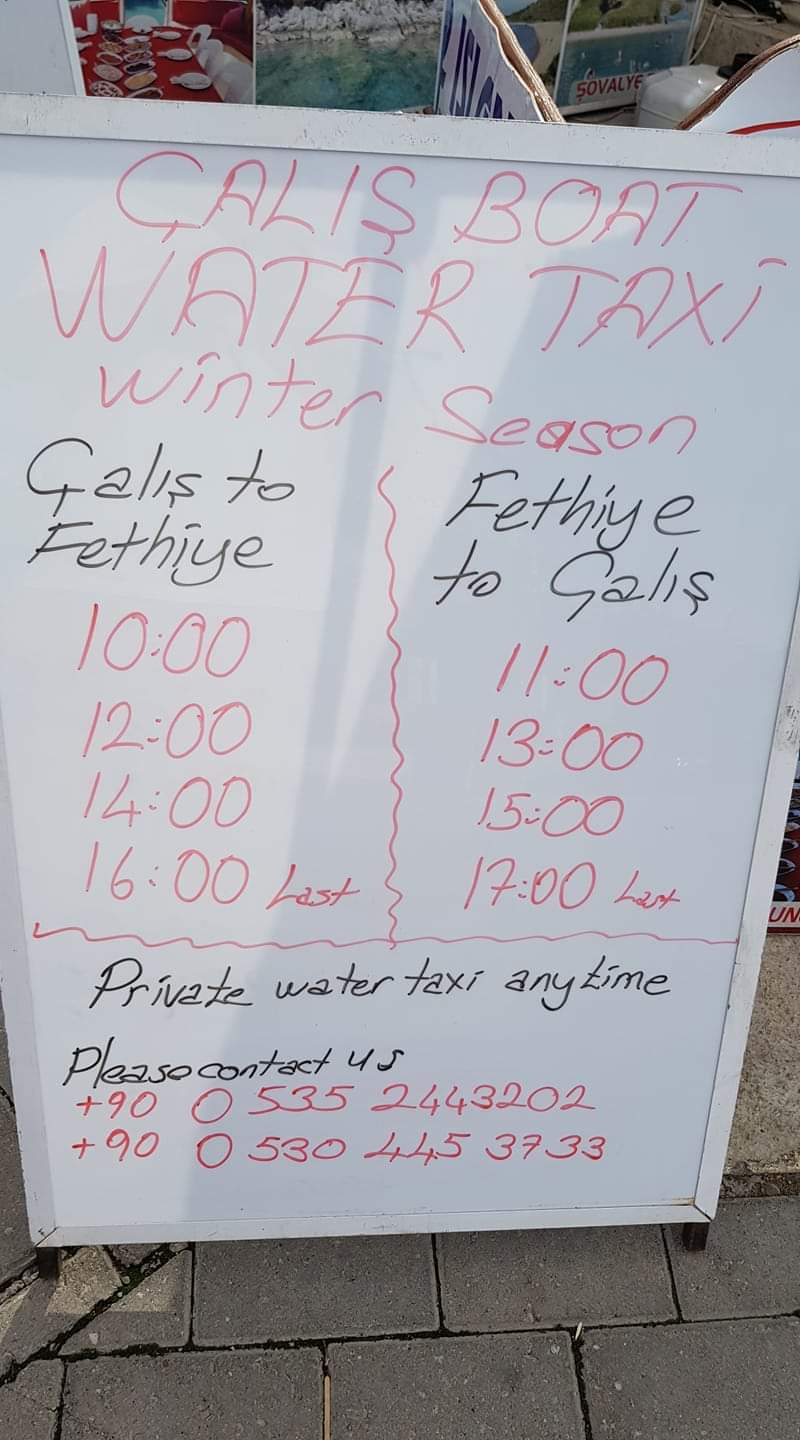 ŞOVALYE
ÇALIŞ BOAT
WATER TAXİ
Winter Season
Çalış to
Fethiye
10:00
12:00
14:00
16:00 Last
Fethiye
to Çalış
11:00
13:00
15:00
17:00 Last
Private water taxi anytime
Please contact us
+90 0 535 2443202
+90 0 530 445 3733